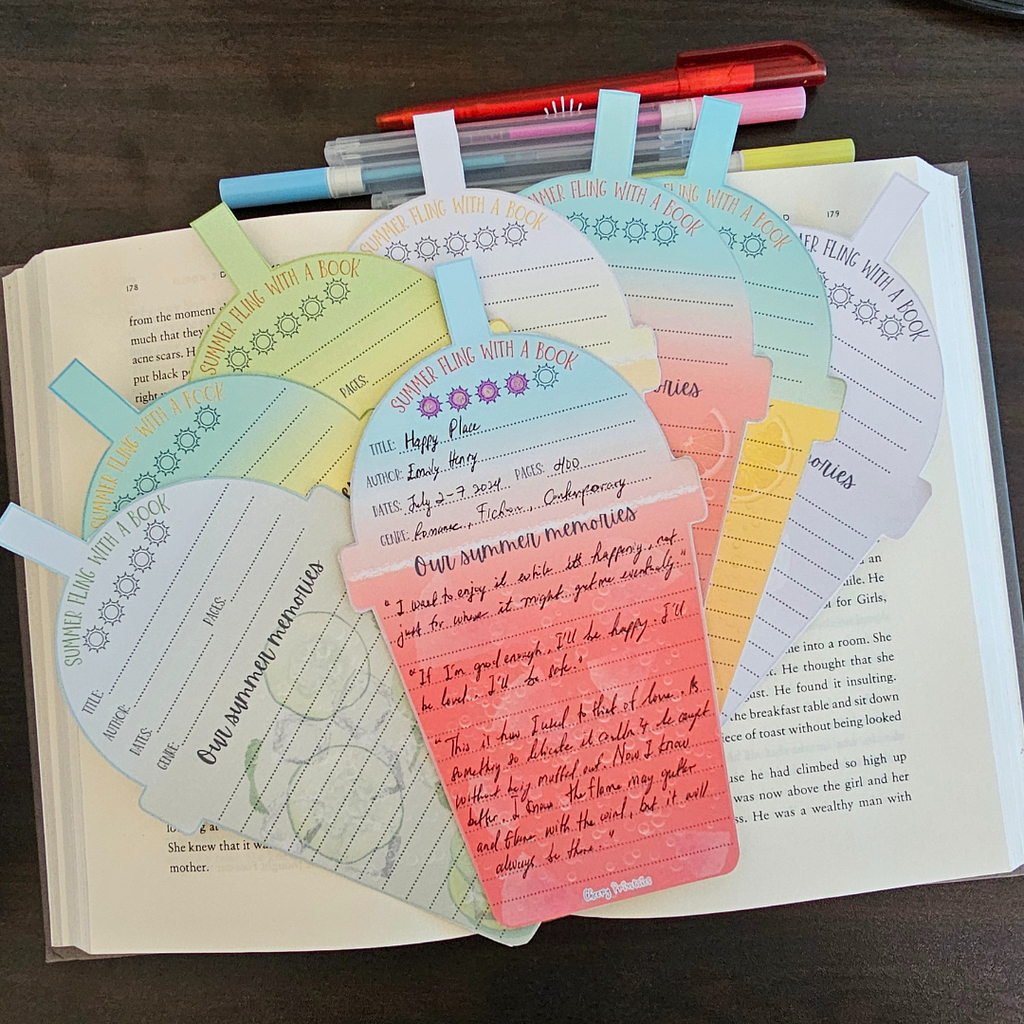 178
from the moment
much that they
acne scars. H
put black p
right
She knew that it wa
mother.
179
an
mile. He
for Girls,
me into a room. She
. He thought that she
ust. He found it insulting.
the breakfast table and sit down
iece of toast without being looked
use he had climbed so high up
was now above the girl and her
ss. He was a wealthy man with
SUMMER FLING WITH A BOOK
SUMMER FLING WITH A BOOK
PAGES:
SUMMER FLING WITH A BOOK
SUMMER FLING WITH A BOOK
PAGES:
TITLE:
AUTHOR:
DATES:
GENRE:
Our summer memories
MMER FLING WITH A BOOK
ories
FLING WITH A BOOK
MER FLING WITH A BOOK
mories
SUMMER FLING WITH A BOOK
TITLE: Happy Place
AUTHOR: Emily Henry
DATES: July 2-7, 2024 PAGES: 400
GENRE: Romance, Fiction, Contemporary
Our summer memories
"I want to enjoy it while it's happening, not
just for where it might get me eventually."
"If I'm good enough, I'll be happy. I'll
be loved. I'll be safe."
"This is how I used to think of love. As
something so delicate it couldn't be caught
without being snuffed out. Now I know
better. I know the flame may gutter
and flare with the wind, but it will
always be there."
Cheery Printables